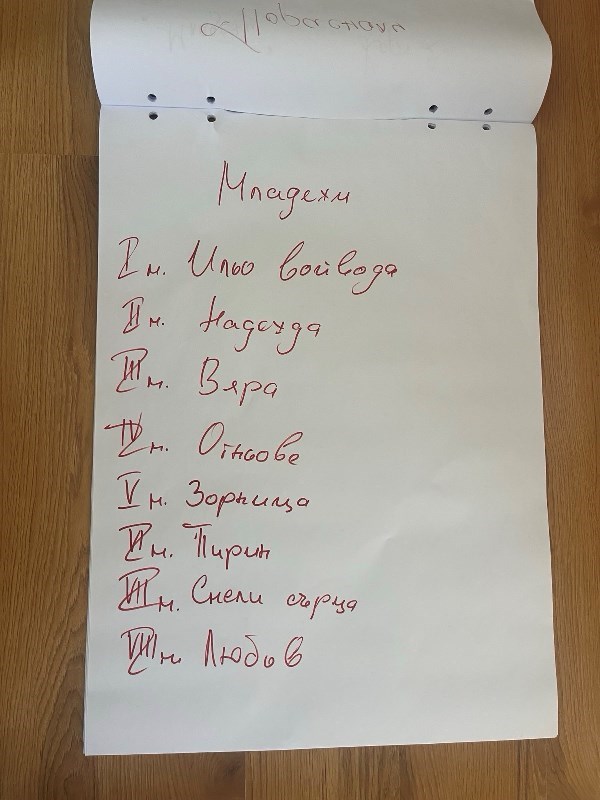 Порасналки
Младежи
I м. Ильо войвода
II м. Надежда
III м. Вяра
IV м. Огньове
V м. Зорница
VI м. Пирин
VII м. Смели сърца
VIII м. Любов